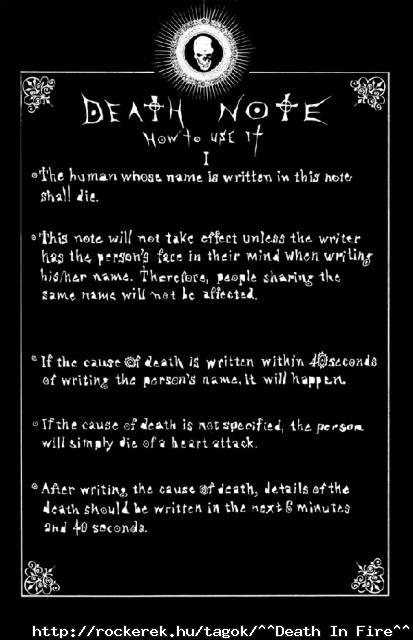 DEATH NOTE
How to use it
I
The human whose name is written in this note
shall die.
This note will not take effect unless the writer
has the person's face in their mind when writing
his/her name. Therefore, people sharing the
same name will not be affected.
If the cause of death is written within 40 seconds
of writing the person's name, it will happen.
If the cause of death is not specified, the person
will simply die of a heart attack.
After writing the cause of death, details of the
death should be written in the next 6 minutes
and 40 seconds.
http://rockerek.hu/tagok/^^Death In Fire^^